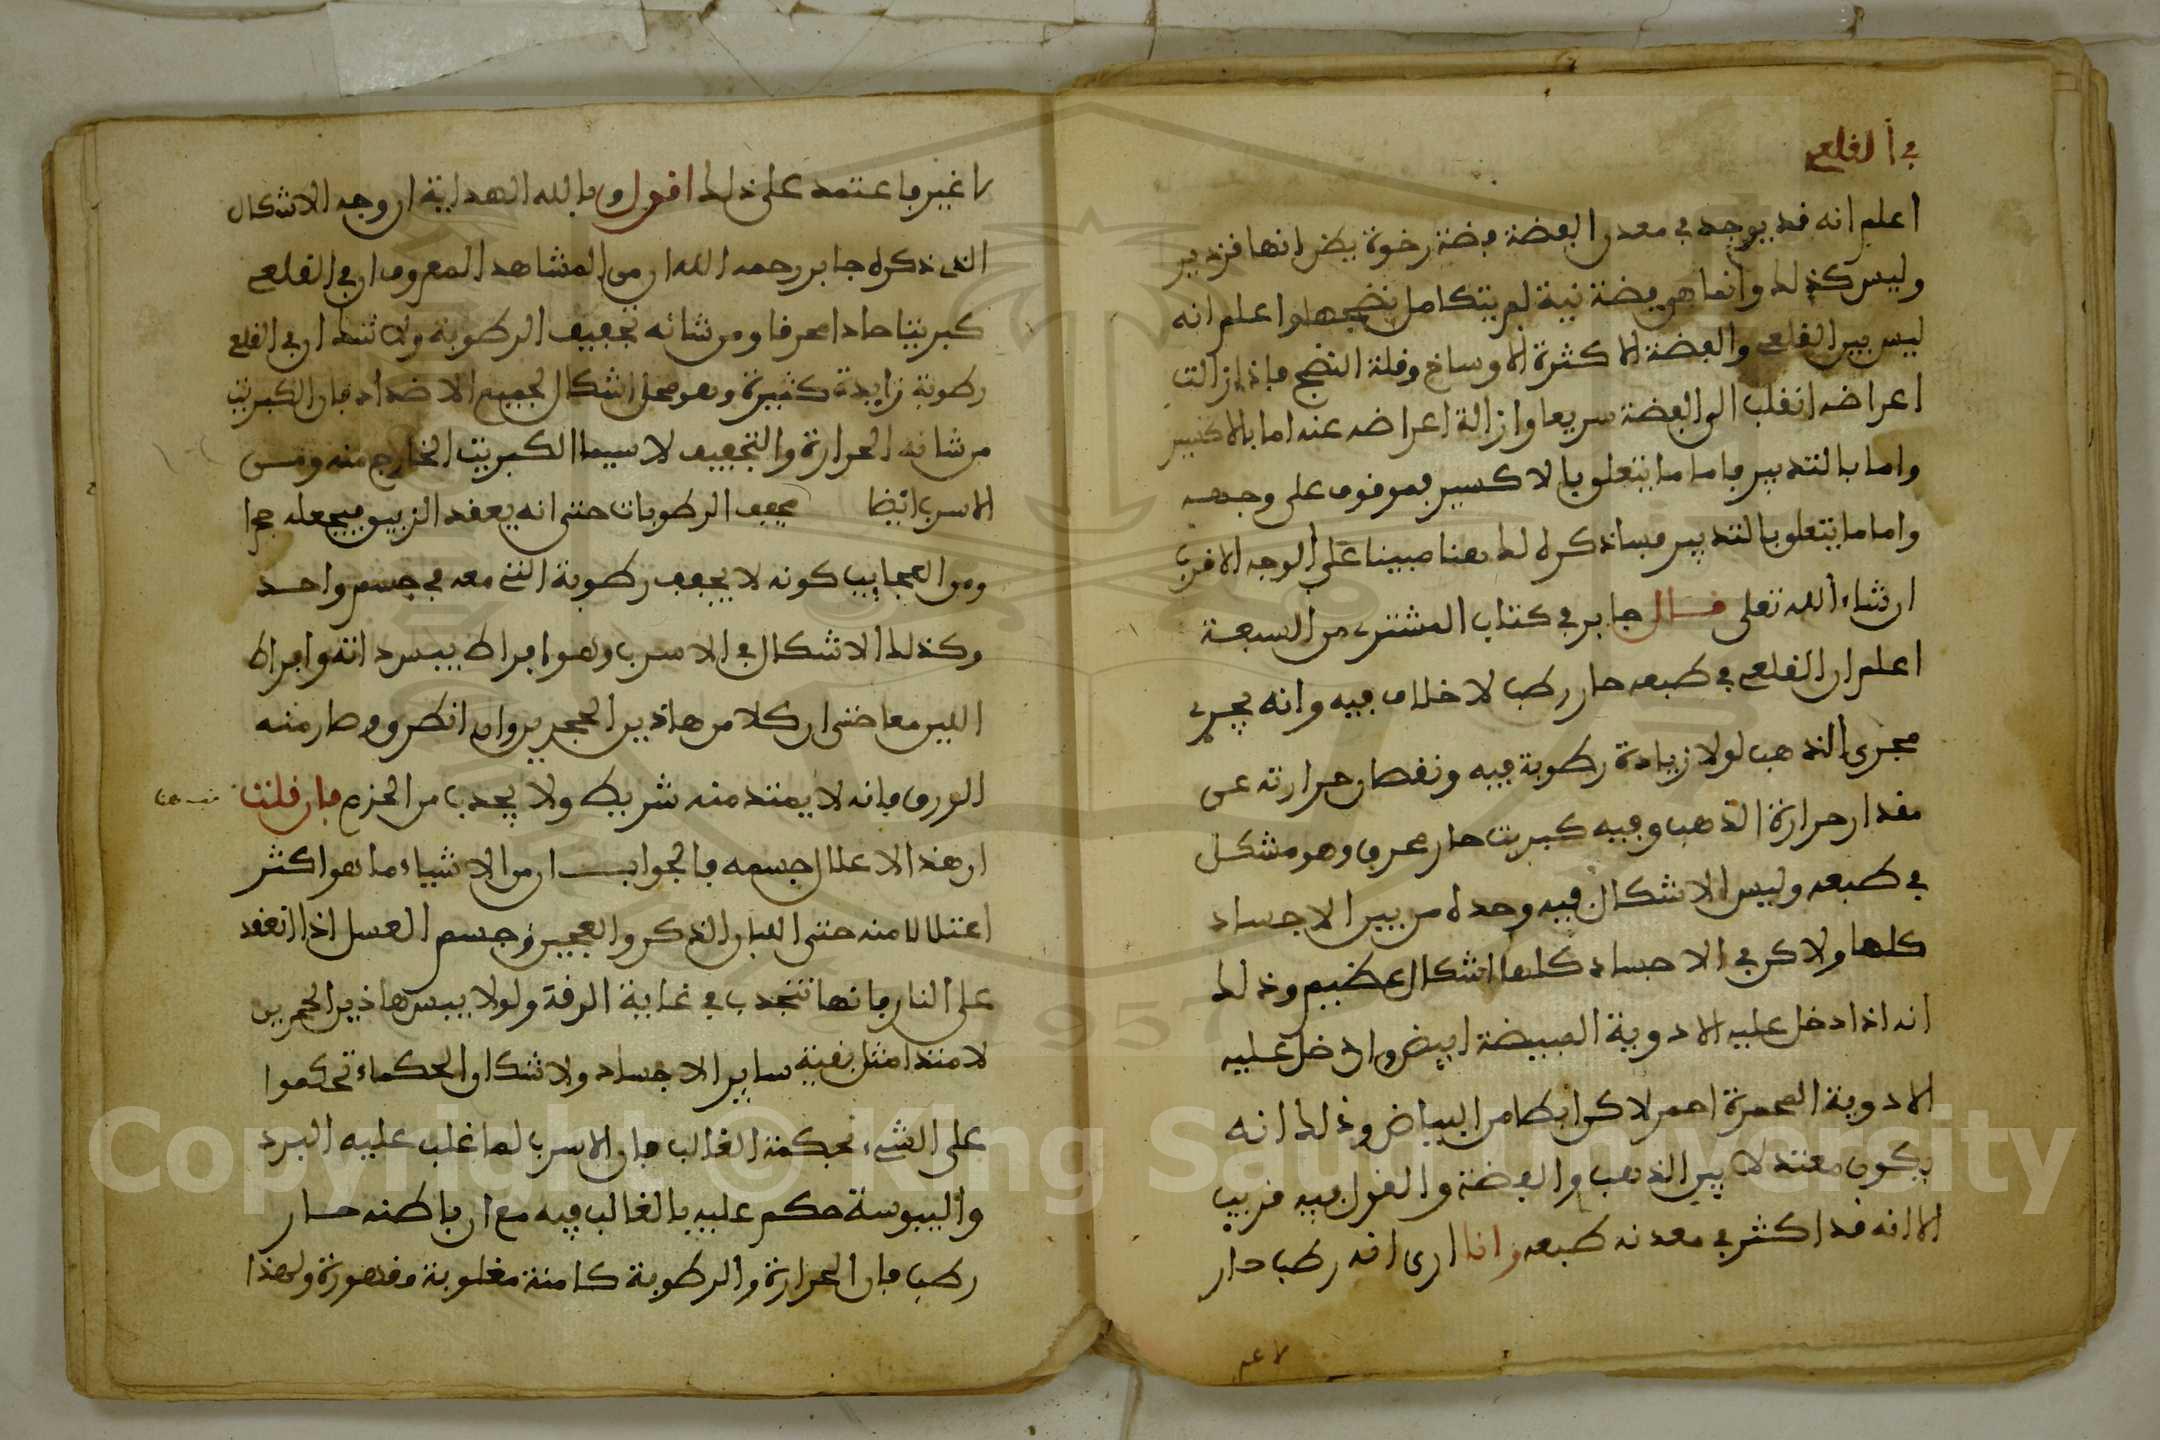 في القلعي
اعلم انه قد يوجد في معدن الفضة فضة رخوة يظن انها قزدير
وليس كذلك وانما هي فضة نية لم يتكامل نضجها واعلم انه
ليس بين القلعي والفضة الا كثرة الاوساخ وقلة النضج فاذا زالت
اعراضه انقلب الى الفضة سريعا وازالة اعراضه عنه اما بالاكسير
واما بالتدبير فاما ما يتعلق بالاكسير فموقوف على وجهه
واما ما يتعلق بالتدبير فساذكره لك هنا مبينا على الوجه الاقرب
ان شاء الله تعلى قال جابر في كتاب المشتري من السبعة
اعلم ان القلعي في طبعه حار رطب لا خلاف فيه وانه يجري
مجرى الذهب لولا زيادة رطوبة فيه ونقصان حرارته عن
مقدار حرارة الذهب وفيه كبريت حار محرق وهو مشكل
في طبعه وليس الاشكال فيه وحده من بين الاجساد
كلها ولاكن في الاجساد كلها اشكال عظيم وذلك
انه اذا دخل عليه الادوية المبيضة ابيض وان دخل عليه
الادوية المحمرة احمر لاكن ابطا من البياض وذلك انه
يكون معتدلا بين الذهب والفضة والقول فيه قريب
الا انه قد اكثر في معدنه طبعه وانا ارى انه رطب حار
لا غير
لا غير فاعتمد على ذلك اقول وبالله الهداية ان وجه الاشكال
الذي ذكره جابر رحمه الله ان من المشاهد المعروف ان في القلعي
كبريتا حادا محرقا ومن شانه تجفيف الرطوبة ولا شك ان في القلعي
رطوبة زايدة كثيرة وهو محل اشكال لجميع الاضداد فان الكبريت
من شانه الحرارة والتجفيف لا سيما الكبريت الخارج منه ومن
الاسرب ايضا يجفف الرطوبات حتى انه يعقد الزيبق فيجعله حجرا
ومن العجايب كونه لا يجفف رطوبة التي معه في جسم واحد
وكذلك الاشكال في الاسرب وهو افراط يبس ذاته وافراط
اللين معا حتى ان كلا من هاذين الحجرين وان انطرق وصار منه
الورق فانه لا يمتد منه شريط ولا يجذب من الخزم فان قلت
ان هذا الاعلال جسمه فالجواب ان من الاشياء ما هو اكثر
اعتلالا منه حتى اللبان الذكر والعجين وجسم العسل اذا انعقد
على النار فانها تنجذب في غاية الرقة ولولا يبس هاذين الحجرين
لامتدا مثل بقية ساير الاجساد ولا شك ان الحكماء تحكموا
على الشيء بحكمة الغالب فان الاسرب لما غلب عليه البرد
واليبوسة حكم عليه بالغالب فيه مع ان باطنه حار
رطب فان الحرارة والرطوبة كامنة مغلوبة مقهورة ولهذا